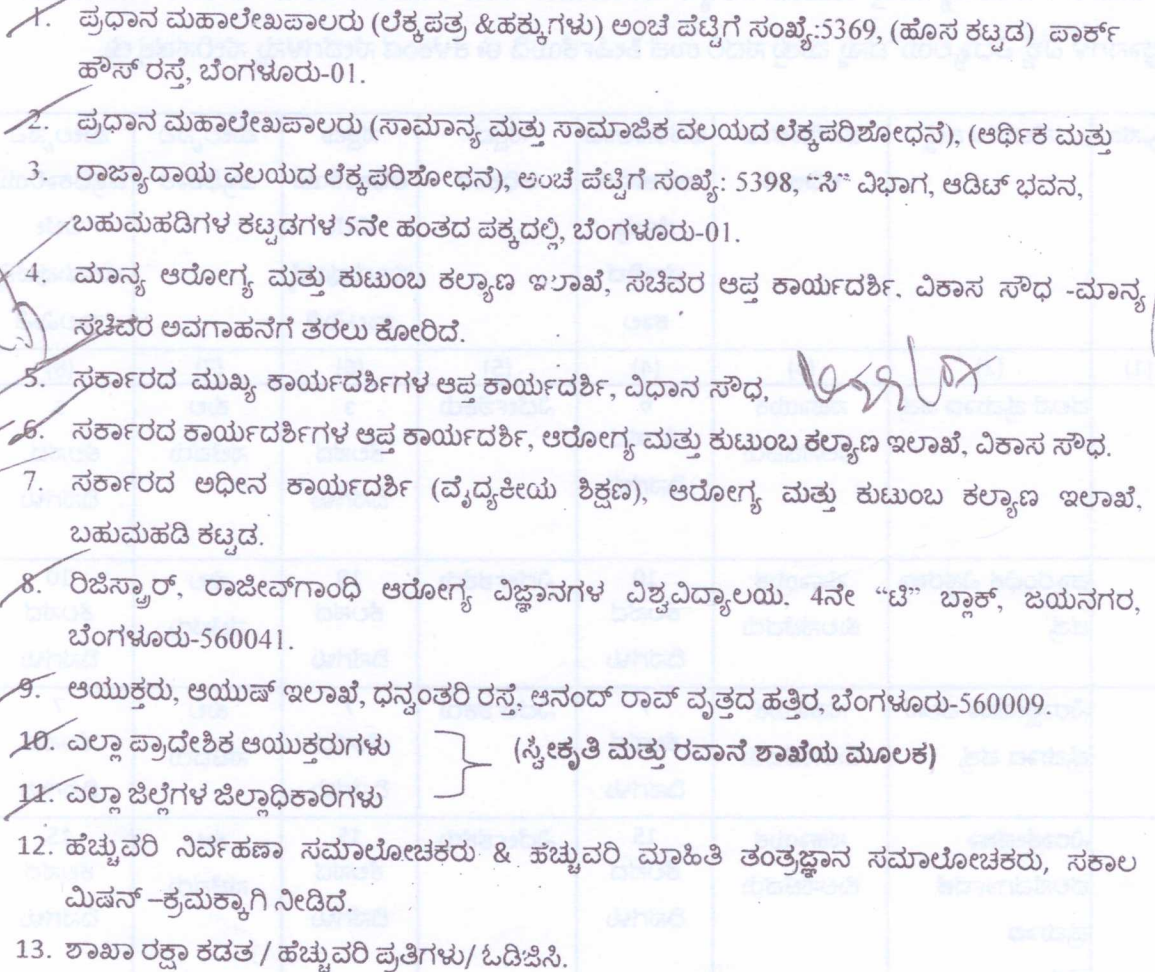 1. ಪ್ರಧಾನ ಮಹಾಲೇಖಪಾಲರು (ಲೆಕ್ಕಪತ್ರ &ಹಕ್ಕುಗಳು) ಅಂಚೆ ಪೆಟ್ಟಿಗೆ ಸಂಖ್ಯೆ:5369, (ಹೊಸ ಕಟ್ಟಡ) ಪಾರ್ಕ್
ಹೌಸ್ ರಸ್ತೆ, ಬೆಂಗಳೂರು-01.
2. ಪ್ರಧಾನ ಮಹಾಲೇಖಪಾಲರು (ಸಾಮಾನ್ಯ ಮತ್ತು ಸಾಮಾಜಿಕ ವಲಯದ ಲೆಕ್ಕಪರಿಶೋಧನೆ), (ಆರ್ಥಿಕ ಮತ್ತು
3. ರಾಜ್ಯಾದಾಯ ವಲಯದ ಲೆಕ್ಕಪರಿಶೋಧನೆ) ಅಂಚೆ ಪೆಟ್ಟಿಗೆ ಸಂಖ್ಯೆ: 5398, "ಸಿ" ವಿಭಾಗ, ಆಡಿಟ್ ಭವನ,
ಬಹುಮಹಡಿಗಳ ಕಟ್ಟಡಗಳ 5ನೇ ಹಂತದ ಪಕ್ಕದಲ್ಲಿ, ಬೆಂಗಳೂರು-01.
4. ಮಾನ್ಯ ಆರೋಗ್ಯ ಮತ್ತು ಕುಟುಂಬ ಕಲ್ಯಾಣ ಇಲಾಖೆ, ಸಚಿವರ ಆಪ್ತ ಕಾರ್ಯದರ್ಶಿ, ವಿಕಾಸ ಸೌಧ -ಮಾನ್ಯ
ಸಚಿವರ ಅವಗಾಹನೆಗೆ ತರಲು ಕೋರಿದೆ.
5. ಸರ್ಕಾರದ ಮುಖ್ಯ ಕಾರ್ಯದರ್ಶಿಗಳ ಆಪ್ತ ಕಾರ್ಯದರ್ಶಿ, ವಿಧಾನ ಸೌಧ,
6. ಸರ್ಕಾರದ ಕಾರ್ಯದರ್ಶಿಗಳ ಆಪ್ತ ಕಾರ್ಯದರ್ಶಿ, ಆರೋಗ್ಯ ಮತ್ತು ಕುಟುಂಬ ಕಲ್ಯಾಣ ಇಲಾಖೆ, ವಿಕಾಸ ಸೌಧ.
7. ಸರ್ಕಾರದ ಅಧೀನ ಕಾರ್ಯದರ್ಶಿ (ವೈದ್ಯಕೀಯ ಶಿಕ್ಷಣ), ಆರೋಗ್ಯ ಮತ್ತು ಕುಟುಂಬ ಕಲ್ಯಾಣ ಇಲಾಖೆ,
ಬಹುಮಹಡಿ ಕಟ್ಟಡ.
8. ರಿಜಿಸ್ಟ್ರಾರ್, ರಾಜೀವ್‌ಗಾಂಧಿ ಆರೋಗ್ಯ ವಿಜ್ಞಾನಗಳ ವಿಶ್ವವಿದ್ಯಾಲಯ, 4ನೇ “ಟಿ” ಬ್ಲಾಕ್, ಜಯನಗರ,
ಬೆಂಗಳೂರು-560041.
9. ಆಯುಕ್ತರು, ಆಯುಷ್ ಇಲಾಖೆ, ಧನ್ವಂತರಿ ರಸ್ತೆ, ಆನಂದ್ ರಾವ್ ವೃತ್ತದ ಹತ್ತಿರ, ಬೆಂಗಳೂರು-560009.
10. ಎಲ್ಲಾ ಪ್ರಾದೇಶಿಕ ಆಯುಕ್ತರುಗಳು (ಸ್ವೀಕೃತಿ ಮತ್ತು ರವಾನೆ ಶಾಖೆಯ ಮೂಲಕ)
11. ಎಲ್ಲಾ ಜಿಲ್ಲೆಗಳ ಜಿಲ್ಲಾಧಿಕಾರಿಗಳು
12. ಹೆಚ್ಚುವರಿ ನಿರ್ವಹಣಾ ಸಮಾಲೋಚಕರು & ಹೆಚ್ಚುವರಿ ಮಾಹಿತಿ ತಂತ್ರಜ್ಞಾನ ಸಮಾಲೋಚಕರು, ಸಕಾಲ
ಮಿಷನ್ –ಕ್ರಮಕ್ಕಾಗಿ ನೀಡಿದೆ.
13. ಶಾಖಾ ರಕ್ಷಾ ಕಡತ / ಹೆಚ್ಚುವರಿ ಪ್ರತಿಗಳು/ ಓಡಿಜಿಸಿ.